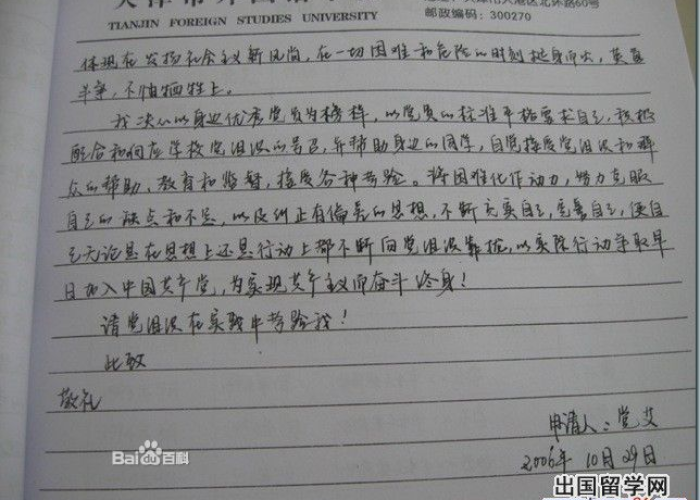 TIANJIN FOREIGN STUDIES UNIVERSITY
邮政编码：300270
体现在发扬社会主义新风尚，在一切困难和危险的时刻挺身而出，英勇
斗争，不怕牺牲上。
我决心以身边优秀党员为榜样，以党员的标准严格要求自己，积极
配合和响应学校党组织的号召，并帮助身边的同学，自觉接受党组织和群
众的帮助、教育和监督，接受各种考验。将困难化作动力，努力克服
自己的缺点和不足，以及纠正有偏差的思想，不断充实自己，完善自己，使自
己无论是在思想上还是行动上都不断向党组织靠拢，以实际行动争取早
日加入中国共产党，为实现共产主义而奋斗终身！
请党组织在实践中考验我！
此致
敬礼
申请人：党艾
2006年 10月29日
Baidu百科
出国留学网